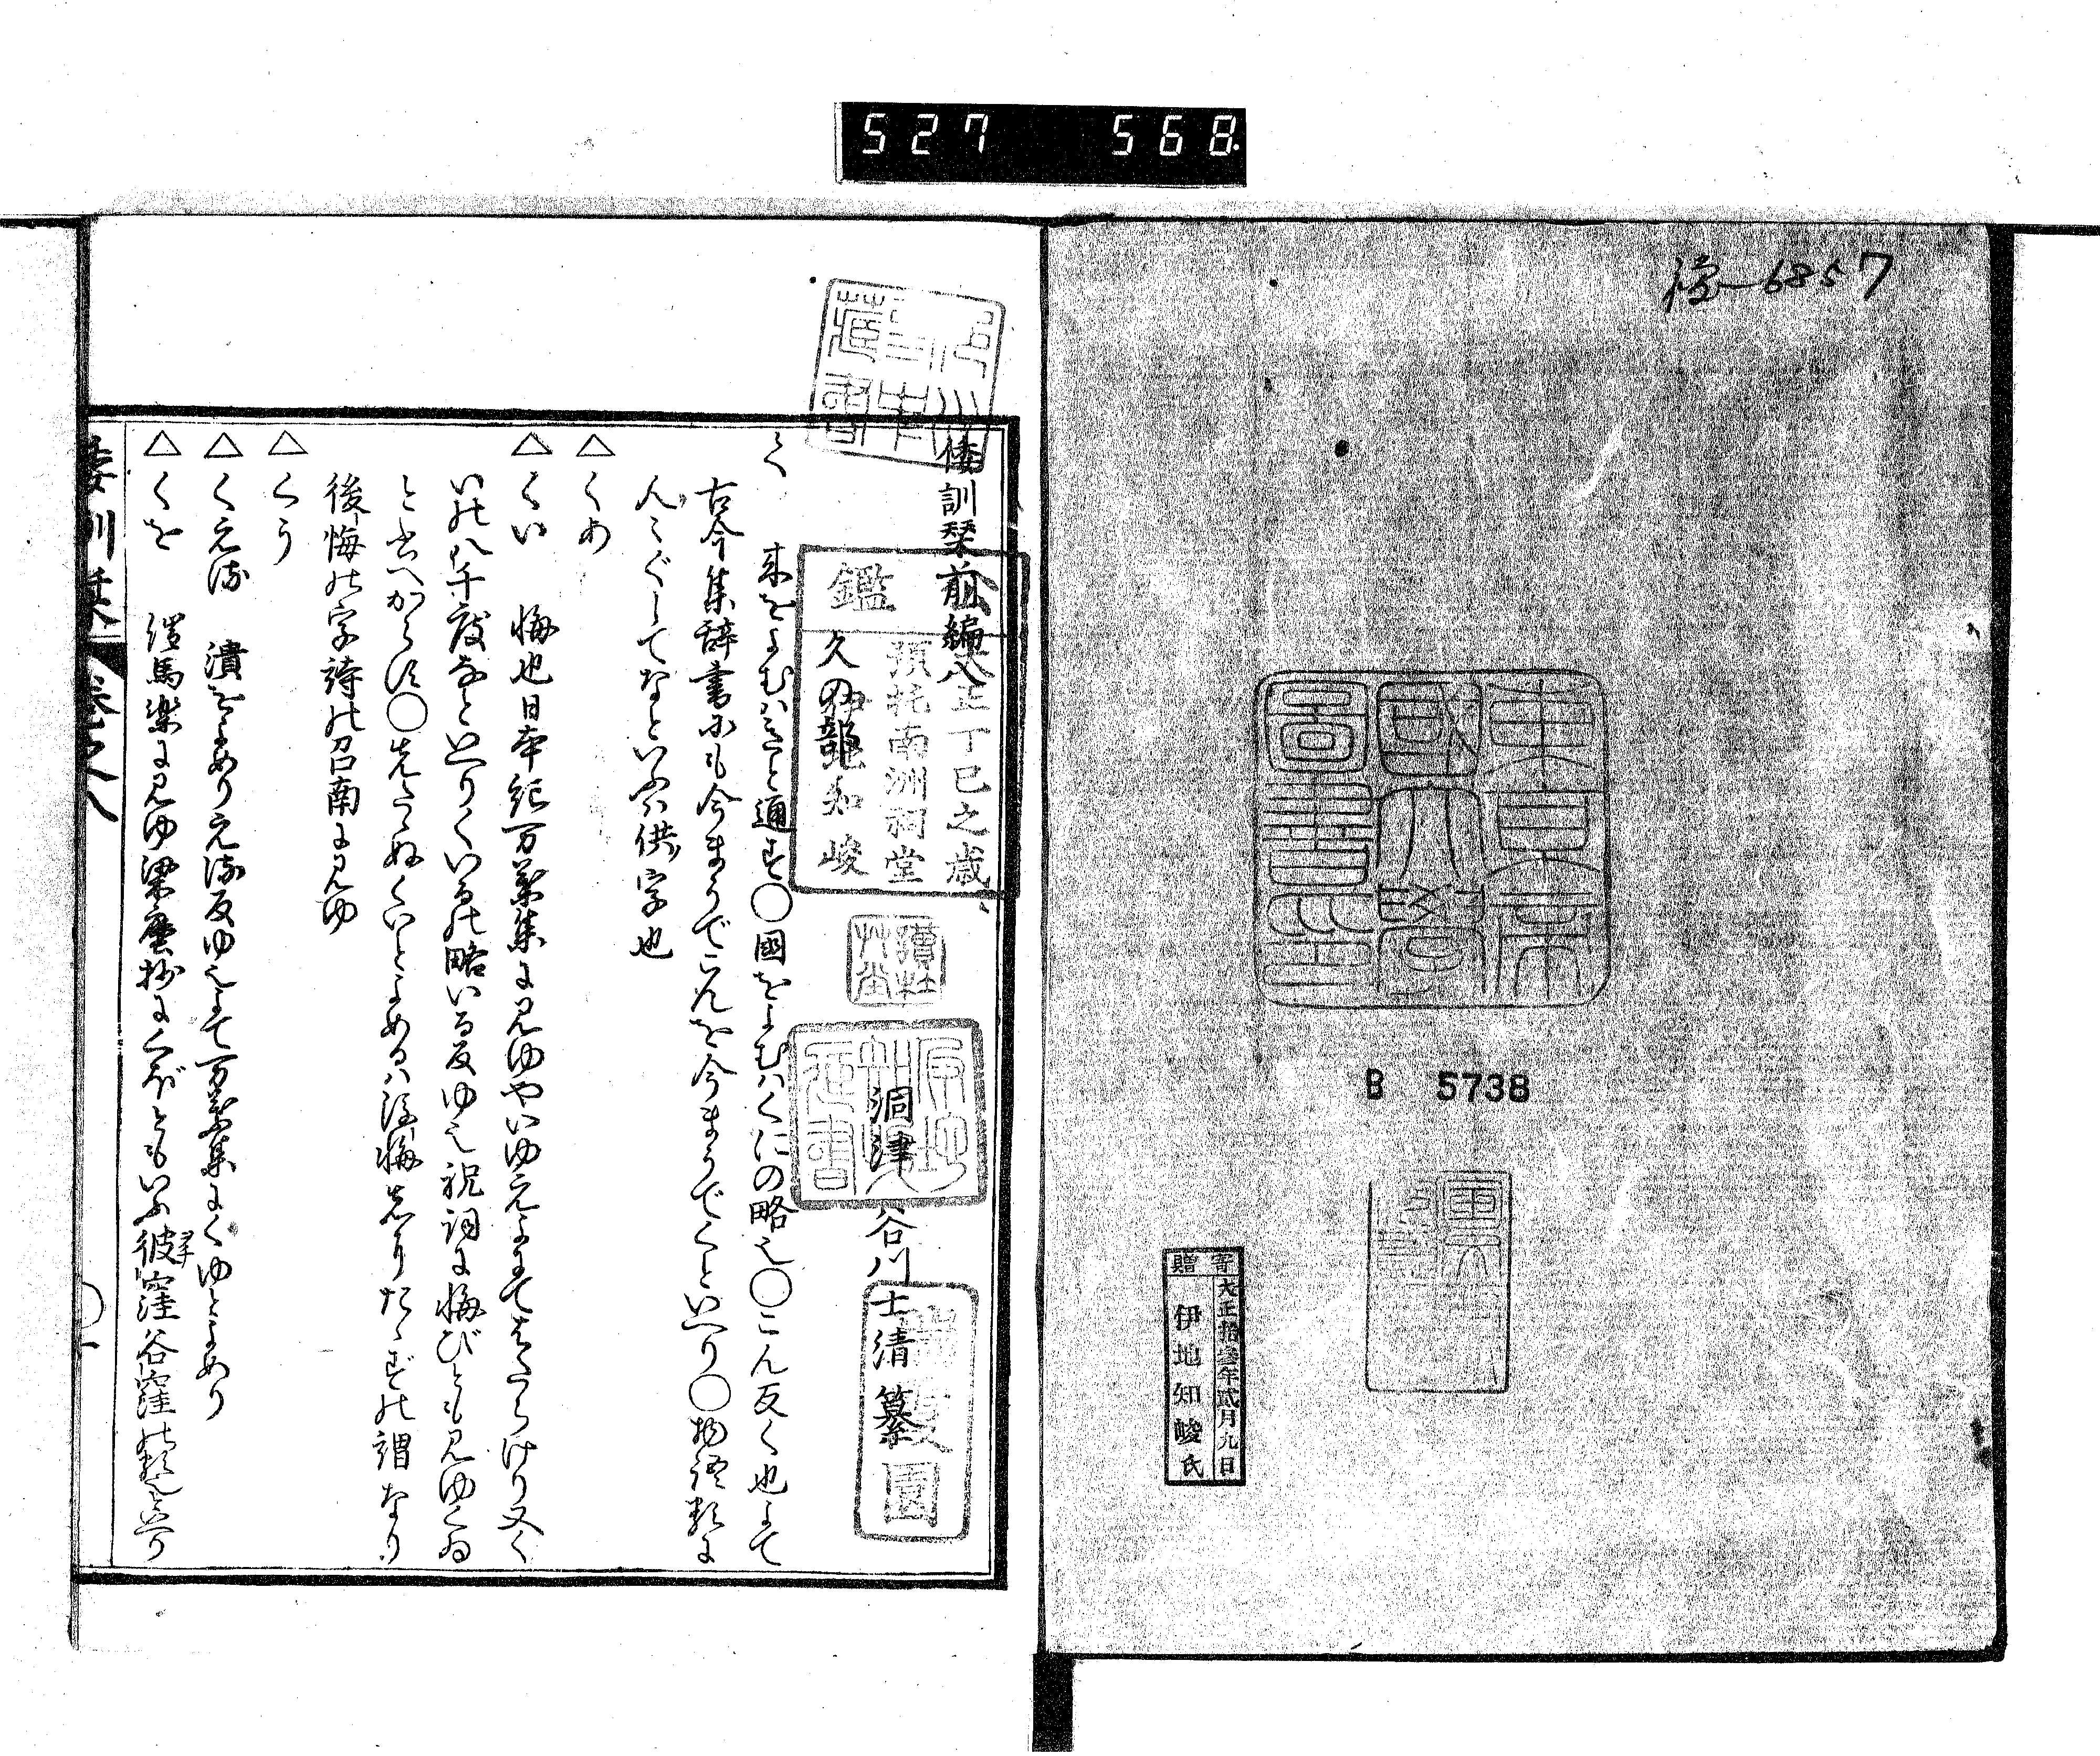 527 568
6857
東京帝國大學圖書印
B 5738
寄贈
大正拾參年貳月九日
伊地知峻氏
倭訓栞前編八
大正丁巳之歳
南洲祠堂
鑑
久の部
洞津 谷川士清 纂
く 来をよむはきと通す○國をよむはくにの略也○こん反く也よて
古今集辞書にも今まうでこんを今まうでくといへり○物語類に
人くぐしてなどいふハ供ノ字也
△くあ
△くい 悔也日本紀万葉集に見ゆやいゆえよにてはたらけり又く
いの八千度などいへりくいるの略いる反ゆ也祝詞に悔びとも見ゆくゐ
と書へからす○先たゝぬくいとよめるハ後悔先にたゝずの謂なり
後悔の字詩の召南に見ゆ
△くう
△くえる 潰をよめりえる反ゆ也よて万葉集にくゆとよめり
△くを 催馬楽に見ゆ梁塵抄にくぼともいふ彼窪谷窪の類也といへり
倭訓栞 巻之八 ○一